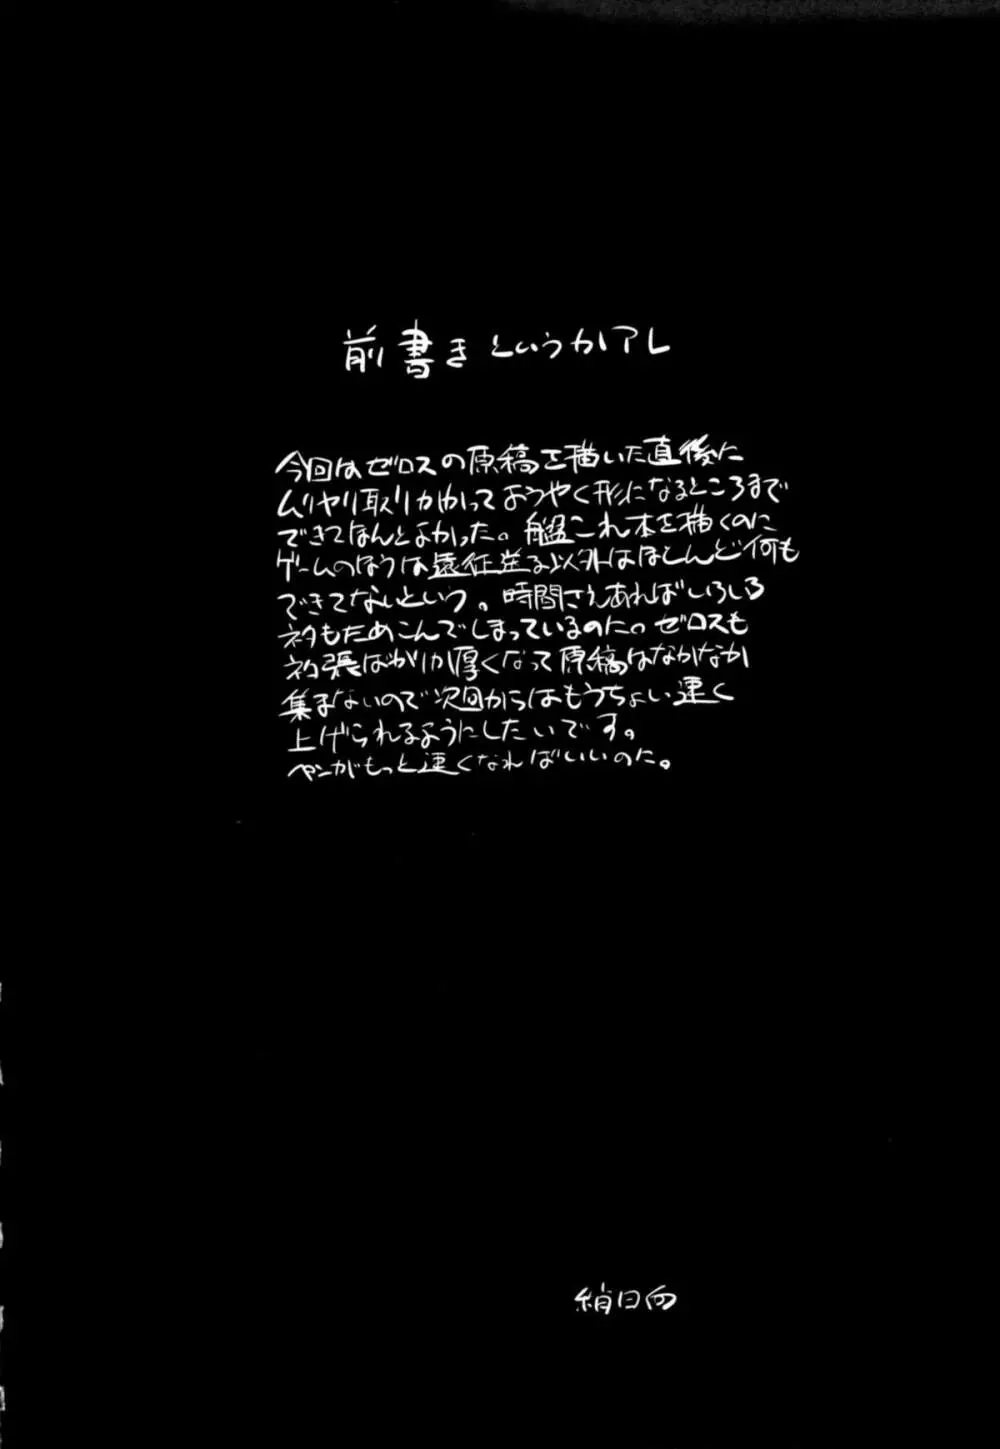 前書きというかアレ
今回はゼロスの原稿を描いた直後に
ムリヤリ取りかかってようやく形になるところまで
できてなんとよかった。艦これ本を描くのに
ゲームのほうは遠征送る以外はほとんど何も
できてないという。時間さえあればいろいろ
ネタもためこんでしまっているのに。ゼロスも
ネタ帳ばかり厚くなって原稿はなかなか
集まないので次回からはもうちょい速く
上げられるようにしたいです。
ペンがもっと速くなればいいのに。
絹日向